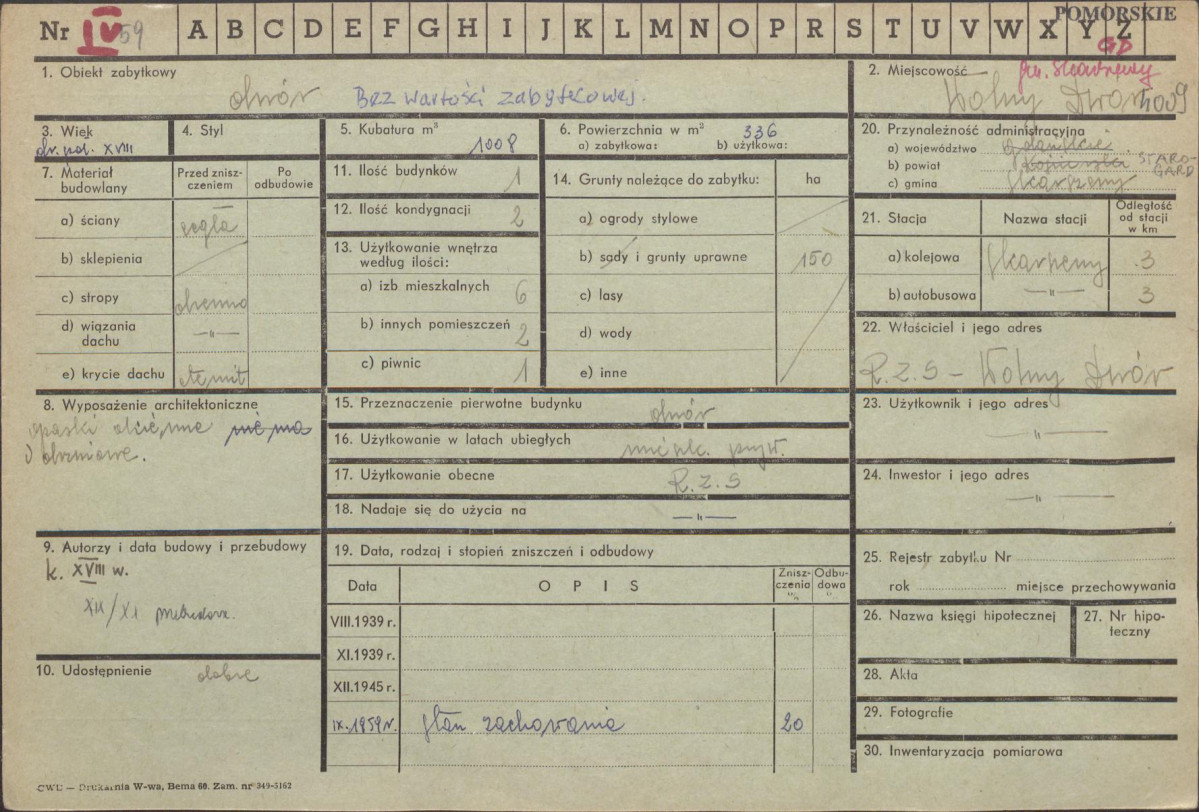 Nr IV 59 A B C D E F G H I J K L M N O P R S T U V W X Y Z
POMORSKIE
GD
1. Obiekt zabytkowy
dwór Bez wartości zabytkowej.
2. Miejscowość gm. Skarszewy
Wolny Dwór 4009
3. Wiek
dr. poł. XVIII
4. Styl
5. Kubatura m³
1008
6. Powierzchnia w m² 336
a) zabytkowa: b) użytkowa:
20. Przynależność administracyjna
a) województwo gdańskie
b) powiat kościerski STAROGARD
c) gmina Skarszewy
7. Materiał budowlany
Przed zniszczeniem
Po odbudowie
a) ściany cegła
b) sklepienia
c) stropy drewno
d) wiązania dachu —"—
e) krycie dachu eternit
11. Ilość budynków 1
12. Ilość kondygnacji 2
13. Użytkowanie wnętrza według ilości:
a) izb mieszkalnych 6
b) innych pomieszczeń 2
c) piwnic 1
14. Grunty należące do zabytku: ha
a) ogrody stylowe
b) sady i grunty uprawne 150
c) lasy
d) wody
e) inne
21. Stacja Nazwa stacji Odległość od stacji w km
a) kolejowa Skarszewy 3
b) autobusowa —"— 3
22. Właściciel i jego adres
R.Z.S – Wolny Dwór
8. Wyposażenie architektoniczne
opaski okienne nie ma
i drzwiowe.
15. Przeznaczenie pierwotne budynku dwór
16. Użytkowanie w latach ubiegłych mieszk. pryw.
17. Użytkowanie obecne R.Z.S
18. Nadaje się do użycia na —"—
23. Użytkownik i jego adres
—"—
24. Inwestor i jego adres
—"—
9. Autorzy i data budowy i przebudowy
k. XVIII w.
XIX/XX przebudow.
19. Data, rodzaj i stopień zniszczeń i odbudowy
Data OPIS Zniszczenia % Odbudowa %
VIII.1939 r.
XI.1939 r.
XII.1945 r.
IX.1959 r. stan zachowania 20
25. Rejestr zabytku Nr
rok miejsce przechowywania
26. Nazwa księgi hipotecznej
27. Nr hipoteczny
10. Udostępnienie dobre
28. Akta
29. Fotografie
30. Inwentaryzacja pomiarowa
CWD — Drukarnia W-wa, Bema 60. Zam. nr 349-5162